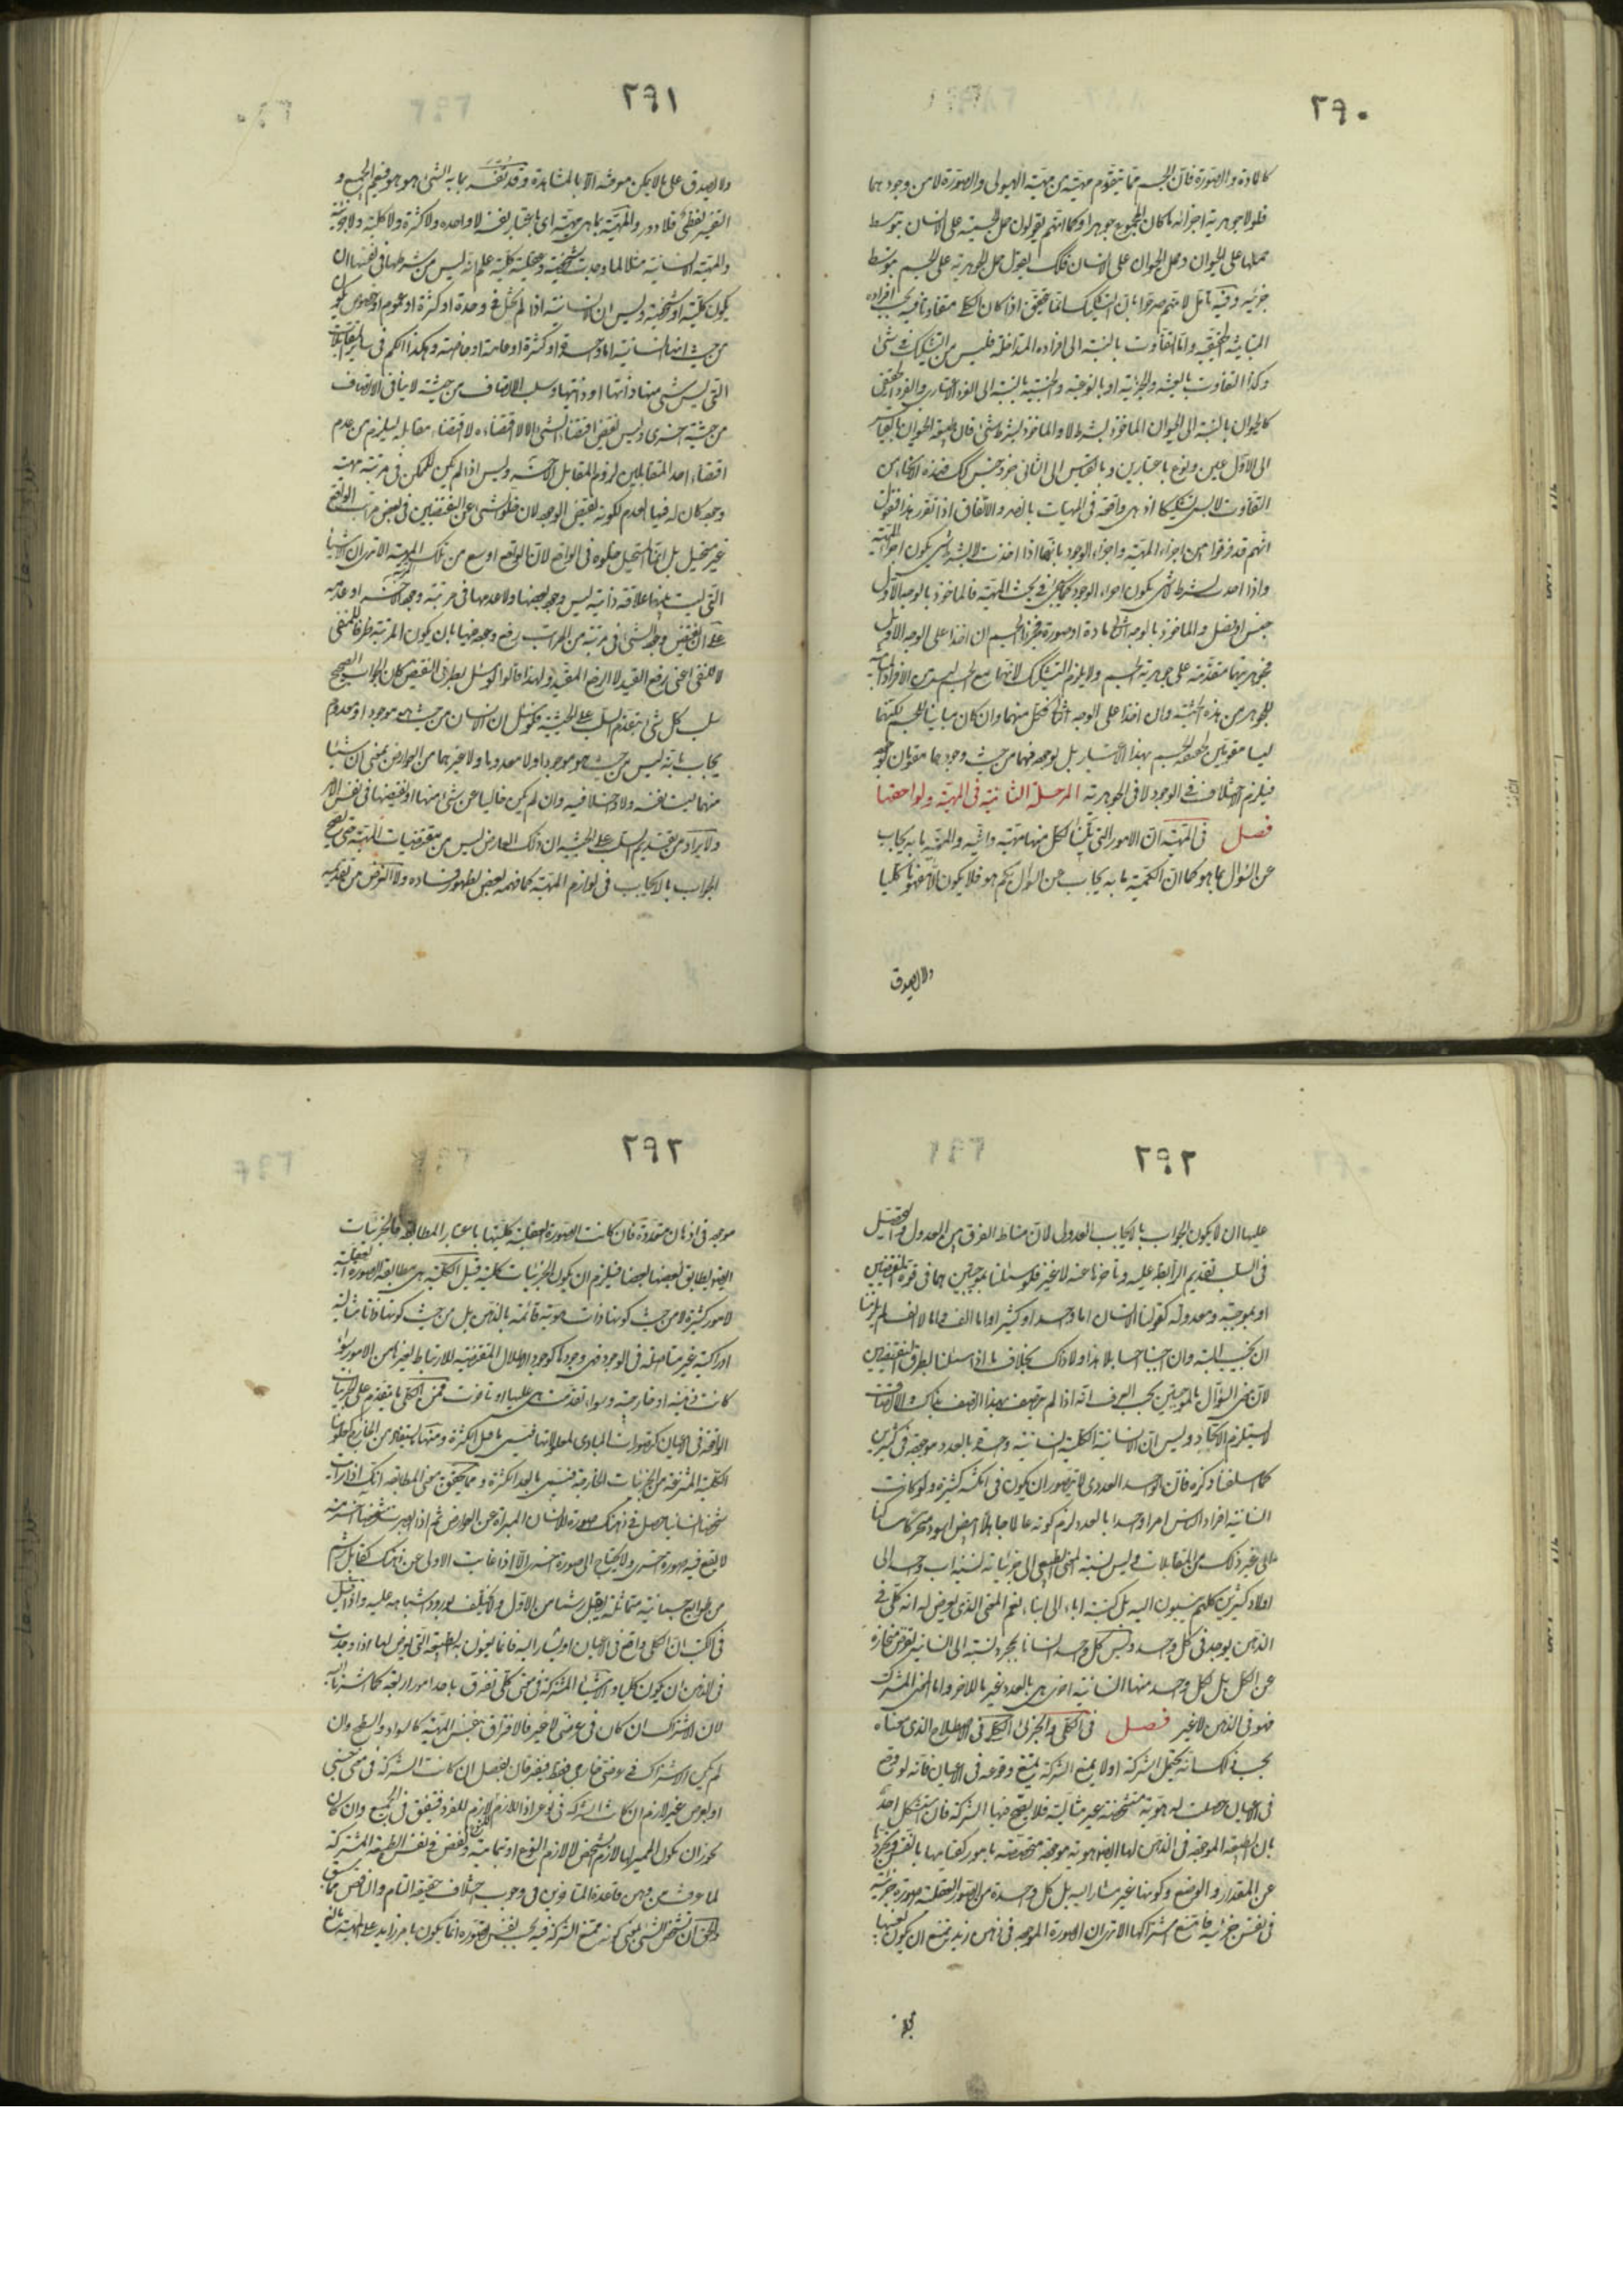 ٢٩٠
كالمادة والصورة فان الجسم مما يتقوم مهيته من مهية الهيولى والصورة لا من وجودهما
فلولا جوهرية اجزائه ما كان المجموع جوهرا وكما انهم يقولون حمل الجسمية على الانسان بتوسط
حملها على الحيوان وحمل الحيوان على الانسان فكذلك نقول حمل الجوهرية على الجسم بتوسط
جزئيه وفيه تأمل لانهم صرحوا بان التشكيك انما يتحقق اذا كان الكلي متفاوتا فيه بحسب افراده
المتباينة الحقيقية واما التفاوت بالنسبة الى افراده المتداخلة فليس من التشكيك في شئ
وكذا التفاوت بالعينية والجزئية او بالنوعية والجنسية بالنسبة الى الفرد الاعتباري والفرد الحقيقي
كالحيوان بالنسبة الى الحيوان الماخوذ بشرط لا والماخوذ بشرط شئ فان طبيعة الحيوان بالقياس
الى الاول عين ونوع باعتبارين وبالقياس الى الثاني جزء وجنس كذلك فهذه الانحاء من
التفاوت لا يسمى تشكيكا اذ هي واقعة في المهيات بالضرورة والاتفاق اذا تقرر هذا فنقول
انهم قد فرقوا بين اجزاء المهية واجزاء الوجود بانها اذا اخذت لا بشرط شئ يكون اجزاء المهية
واذا اخذت بشرط لا شئ يكون اجزاء الوجود كما يجئ في بحث المهية فالماخوذ بالوجه الاول
جنس او فصل والماخوذ بالوجه الثاني مادة او صورة فجزء الجسم ان اخذا على الوجه الاول
فجوهريتهما متقدمة على جوهرية الجسم ولا يلزم التشكيك لانهما مع الجسم ليسا من الافراد المتباينة
للجوهر من هذه الحيثية وان اخذا على الوجه الثاني فكل منهما وان كان مباينا للجسم لكنهما
ليسا مقومين لحقيقة الجسم بهذا الاعتبار بل لوجوده فهما من حيث وجودهما مقومان لوجوده
فيلزم الاختلاف في الوجود لا في الجوهرية المرحلة الثانية في المهية ولواحقها
فصل في المهية ان الامور التي تلينا لكل منها مهية وانية والمهية ما به يجاب
عن السؤال بما هو كما ان الكمية ما به يجاب عن السوال بكم هو فلا يكون الا مفهوما كليا
ولا يصدق
٢٩١
ولا يصدق على ما لا يمكن معرفته الا بالمشاهدة وقد تفسر بما به الشئ هو هو فيعم الجميع و
التفسير لفظي فلا دور والمهية بما هي مهية اي باعتبار نفسها لا واحدة ولا كثيرة ولا كلية ولا جزئية
والمهية الانسانية مثلا لما وجدت شخصية وعقلت كلية علم انه ليس من شرطها في نفسها ان
يكون كلية او شخصية وليس ان الانسانية اذا لم تخل عن وحدة او كثرة او عموم او خصوص يكون
من حيث انها انسانية اما واحدة او كثيرة او عامة او خاصة وهكذا الحكم في ساير المتقابلات
التي ليس شئ منها ذاتها او ذاتيها وسلب الاتصاف من حيثية لا ينافي الاتصاف
من حيثية اخرى وليس نقيض اقتضاء الشئ الا لا اقتضاءه لا اقتضاء مقابله ليلزم من عدم
اقتضاء احد المتقابلين لزوم المقابل الاخر وليس اذا لم يكن للممكن في مرتبة مهيته
وجود كان له فيها العدم لكونه نقيض الوجود لان خلو الشئ عن النقيضين في بعض مراتب الواقع
غير مستحيل بل انما المستحيل خلوه في الواقع لان الواقع اوسع من تلك المرتبة الا ترى ان الاشياء
التي ليست بينها علاقة ذاتية ليس وجود بعضها ولا عدمها في مرتبة وجود الاخر او عدمه
على ان نقيض وجود الشئ في مرتبة من المراتب رفع وجوده فيها بان يكون المرتبة ظرفا للمنفي
لا للنفي اعني رفع المقيد لا الرفع المقيد ولهذا قالوا لو سئل بطرفي النقيض كان الجواب الصحيح
سلب كل شئ بتقديم السلب على الحيثية فلو سئل ان الانسان من حيث هو موجود او معدوم
يجاب بانه ليس من حيث هو موجودا ولا معدوما ولا غيرهما من العوارض بمعنى ان شيئا
منهما ليست نفسه ولا داخلا فيه وان لم يكن خاليا عن شئ منها او نقيضها في نفس الامر
ولا يراد من تقديم السلب على الحيثية ان ذلك العارض ليس من مقتضيات المهية حتى يصح
الجواب بالايجاب في لوازم المهية كما فهمه بعض لظهور فساده ولا الغرض من تقديمه
٢٩٢
عليها ان لا يكون الجواب بالايجاب العدولي لان مناط الفرق بين العدول والتحصيل
في السلب تقديم الرابطة عليه وتأخرها عنه لا غير فلو سئلنا بموجبتين هما في قوة النقيضين
او بموجبة ومعدولة كقولنا الانسان اما واحد او كثير او اما الف واما لا الف لم يلزمنا
ان نجيب البتة وان اجبنا اجبنا بلا هذا ولا ذاك بخلاف ما اذا سئلنا بطرفي النقيضين
لان معنى السؤال بالموجبتين بحسب العرف انه اذا لم يتصف بهذا اتصف بذاك والاتصاف
لا يستلزم الاتحاد وليس ان الانسانية الكلية انسانية واحدة بالعدد موجودة في كثيرين
كما سلفنا ذكره فان الواحد العددي لا يتصور ان يكون في امكنة كثيرة ولو كانت
انسانية افراد الناس امرا واحدا بالعدد لزم كونه عالما جاهلا ابيض اسود متحركا ساكنا
الى غير ذلك من المتقابلات وليس نسبة المعنى الطبيعي الى جزئياته نسبة اب واحد الى
اولاد كثيرين كلهم ينسبون اليه بل كنسبة اباء الى ابناء نعم المعنى الذي يعرض له انه كلي في
الذهن يوجد في كل واحد وليس كل واحد انسانا بمجرد نسبته الى انسانية تفرض منحازة
عن الكل بل لكل واحد منها انسانية اخرى هي بالعدد غير ما للاخر واما المعنى المشترك
فهو في الذهن لا غير فصل في الكلي والجزئي الكلي في الاصطلاح الذي معناه
بحسب ذلك انه يحتمل الشركة او لا يمنع الشركة يمتنع وقوعه في الاعيان فانه لو وقع
في الاعيان حصلت له هوية متشخصة غير مثالية فلا يصح فيها الشركة فان استشكل احد
بان الطبيعة الموجودة في الذهن لها ايضا هوية موجودة متخصصة بامور كقيامها بالنفس وتجردها
عن المقدار والوضع وكونها غير مشار اليه بل كل واحدة من الصور العقلية صورة جزئية
في نفس جزئية فامتنع اشتراكها الا ترى ان الصورة الموجودة في ذهن زيد يمتنع ان يكون بعينها
٢٩٣
موجودة في اذهان متعددة فان كانت الصورة العقلية كليتها باعتبار المطابقة فالجزئيات
ايضا يطابق بعضها بعضا فيلزم ان يكون الجزئيات كلية قيل الكلية هي مطابقة الصورة العقلية
لامور كثيرة لا من حيث كونها ذات هوية قائمة بالذهن بل من حيث كونها ذاتا مثالية
ادراكية غير متاصلة في الوجود فهي وجودها كوجود الاظلال المقتضية للارتباط بغيرها من الامور سواء
كانت ذهنية او خارجية وسواء تقدمت هي عليها او تاخرت فمن الكلي ما يتقدم على الجزئيات
الواقعة في الاعيان كتصورات المبادي لمعلولاتها فيسمى ما قبل الكثرة ومنها يستفاد من الخارج كعلومنا
الكلية المنتزعة من الجزئيات الخارجية فيسمى ما بعد الكثرة ومما يتحقق معنى المطابقة انك اذا رايت
شخصا انسانيا حصل في ذهنك صورة الانسان المبراة عن العوارض ثم اذا ابصرت شخصا اخر منه
لا يقع فيه صورة اخرى ولا يحتاج الى صورة اخرى الا اذا غابت الاولى عن ذهنك كقابل رشم
من طوابع جسمانية متماثلة يقبل رشما من الاول ولا يختلف بورود اشباهه عليه واذا قيل
في الكتب ان الكلي واقع في الاعيان او يشار اليه فانما يعنون به الطبيعة التي يعرض لها اذا وجدت
في الذهن ان يكون كليا والاشياء المشتركة في معنى كلي تفترق باحد امور اربعة كما اشرنا اليه
لان الاشتراك ان كان في عرضي لا غير فالافتراق بنفس المهية كالسواد والسطح وان
لم يكن الاشتراك في عرضي خارجي فقط فيفترقان بفصل ان كانت الشركة في معنى جنسي
او بعرضي غير لازم ان كانت الشركة في نوعي اذ اللازم للنوع لازم للفرد فيتفق في الجميع وان كان
يجوز ان يكون المميز لها لازم الشخص لا لازم النوع او بتمامية ونقص في نفس الطبيعة المشتركة
لما عرفت من وهن قاعدة المتاخرين في وجوب اختلاف حقيقة التام والناقص مما سبق
والحق ان تشخص الشئ بمعنى كونه ممتنع الشركة فيه بحسب نفس تصوره انما يكون بامر زايد على المهية مانع